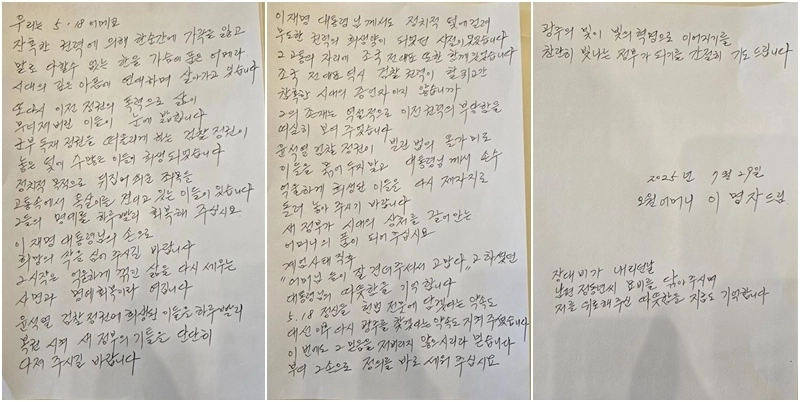 우리는 5.18 어머니요
잔혹한 권력에 의해 한순간에 가족을 잃고
말로 다할수 없는 한을 가슴에 품은 어머니라
시대의 깊은 아픔에 연대하며 살아가고 있습니다
또다시 이전 정권의 폭력으로 삶이
무너져 버린 이들이 눈에 밟힙니다
군부 독재 정권을 떠올리게 하는 검찰 정권이
놓은 덫에 수많은 이들이 희생되었습니다
정치적 목적으로 뒤집어 씌운 죄목을
고통속에서 옥살이를 견디고 있는 이들이 있습니다
그들의 명예를 하루빨리 회복해 주십시요
이재명 대통령님의 손으로
희망의 작은 씨 심어 주시길 바랍니다
그 시작은 억울하게 꺾인 삶을 다시 세우는
사면과 명예회복이라 여깁니다
윤석열 검찰정권에 희생된 이들을 하루빨리
복권 시켜 새 정부의 기틀을 단단히
다져 주시길 바랍니다
이재명 대통령님께서도 정치적 덫에 걸려
무도한 권력의 희생양이 되었던 시절이 있었습니다
그 고통의 자리에 조국 전대표 또한 함께 있었습니다
조국 전대표 역시 검찰 권력이 할퀴고간
참혹한 시대의 증언자이지 않습니까
그의 존재는 역설적으로 이전 권력의 부당함을
여실히 보여 주었습니다
윤석열 검찰정권이 빌린 법의 올가미로
이들을 묶어 두지 말고 대통령님께서 손수
억울하게 희생된 이들을 다시 제자리로
돌려 놓아 주시기 바랍니다
새 정부가 시대의 상처를 끌어안는
어머니의 품이 되어 주십시요
계엄사태 직후
"어머님들이 잘 견뎌주셔서 고맙다"고 하셨던
대통령님의 따뜻함을 기억합니다
5.18 정신을 헌법 전문에 담겠다는 약속도
대선 이후 다시 광주를 찾겠다는 약속도 지켜 주셨습니다
이번에도 그 믿음을 저버리지 않으시리라 믿습니다
부디 그 손으로 정의를 바로 세워 주십시요
광주의 빛이 빛의 혁명으로 이어지기를
찬란히 빛나는 정부가 되기를 간절히 기도 드립니다
2025년 7월 29일
오월어머니 이명자드림
장대비가 내리던날
남편 정동년씨 묘비를 닦아주시며
저를 위로해주신 따뜻함을 지금도 기억합니다